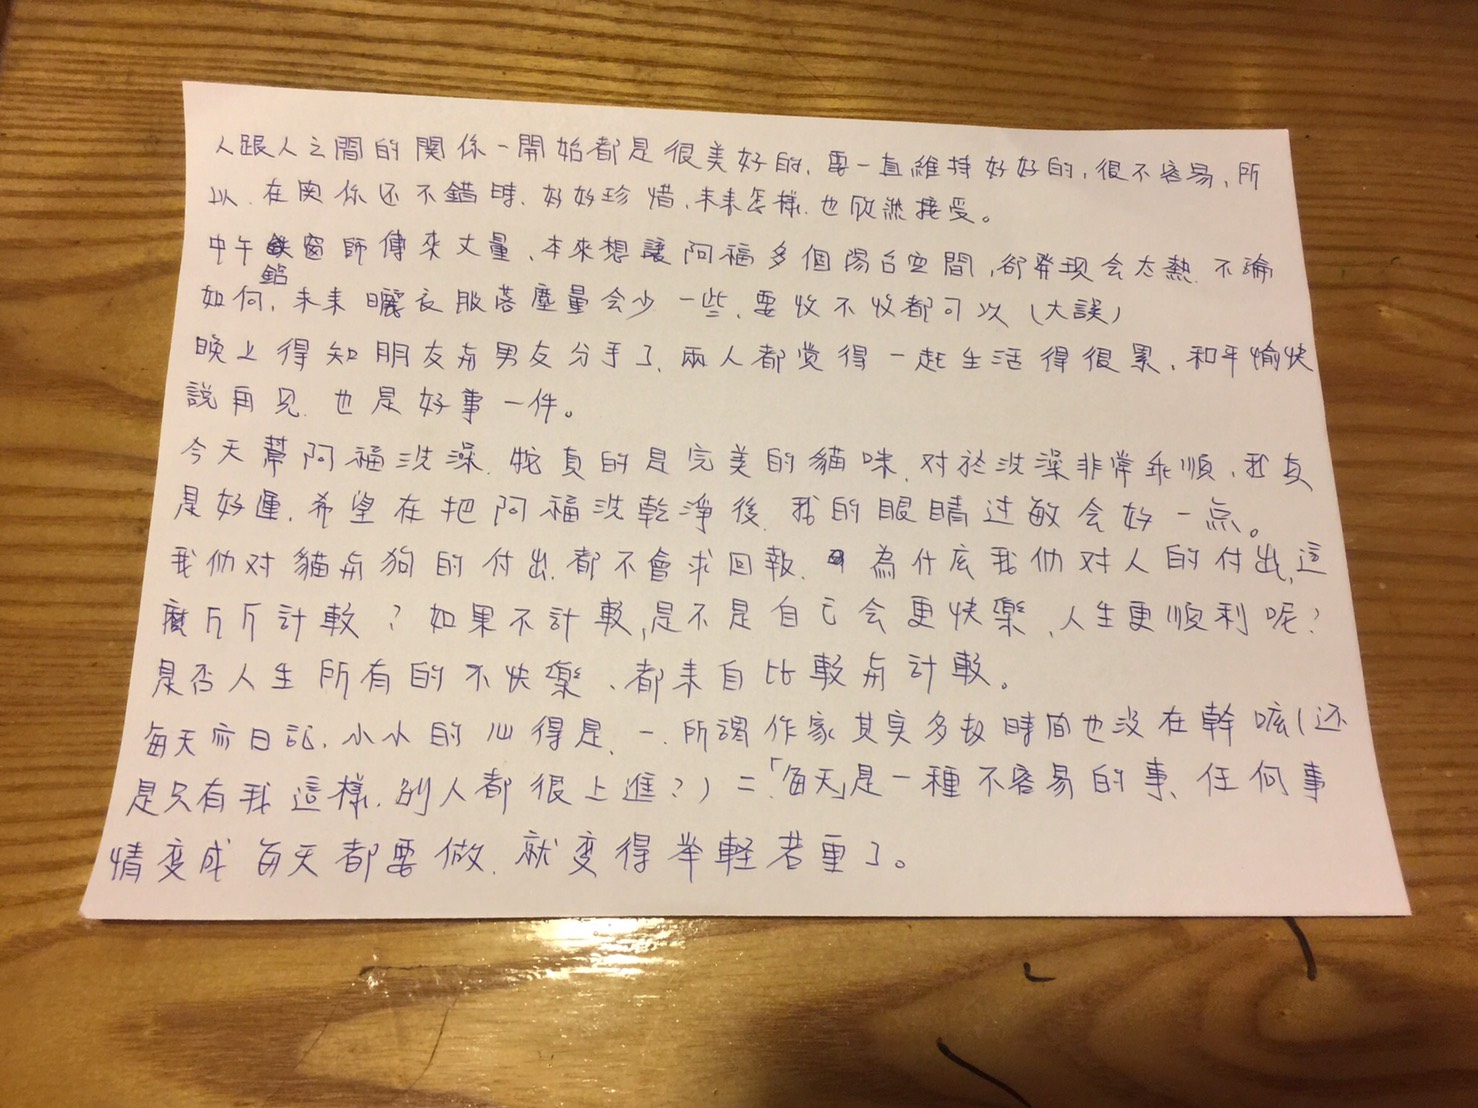 人跟人之間的関係一開始都是很美好的，要一直維持好好的，很不容易，所
以，在関係还不錯時，好好珍惜，未來怎樣，也欣然接受。
中午鋁窗師傅來丈量，本來想讓阿福多個陽台空間，卻発現会太熱，不論
如何，未來曬衣服落塵量会少一些，要收不收都可以（大誤）
晚上得知朋友与男友分手了，兩人都覚得一起生活得很累，和平愉快
說再見，也是好事一件。
今天幫阿福洗澡，牠真的是完美的貓咪，对於洗澡非常乖順，我真
是好運，希望在把阿福洗乾淨後，我的眼睛过敏会好一点。
我们对貓与狗的付出，都不會求回報，為什庅我们对人的付出，這
麼斤斤計較？如果不計較，是不是自己会更快樂，人生更順利呢？
是否人生所有的不快樂，都来自比較与計較。
每天寫日記，小小的心得是，一、所謂作家其实多数時間也沒在幹嘛（还
是只有我這樣，別人都很上進？）二、「每天」是一種不容易的事，任何事
情変成每天都要做，就変得挙軽若重了。